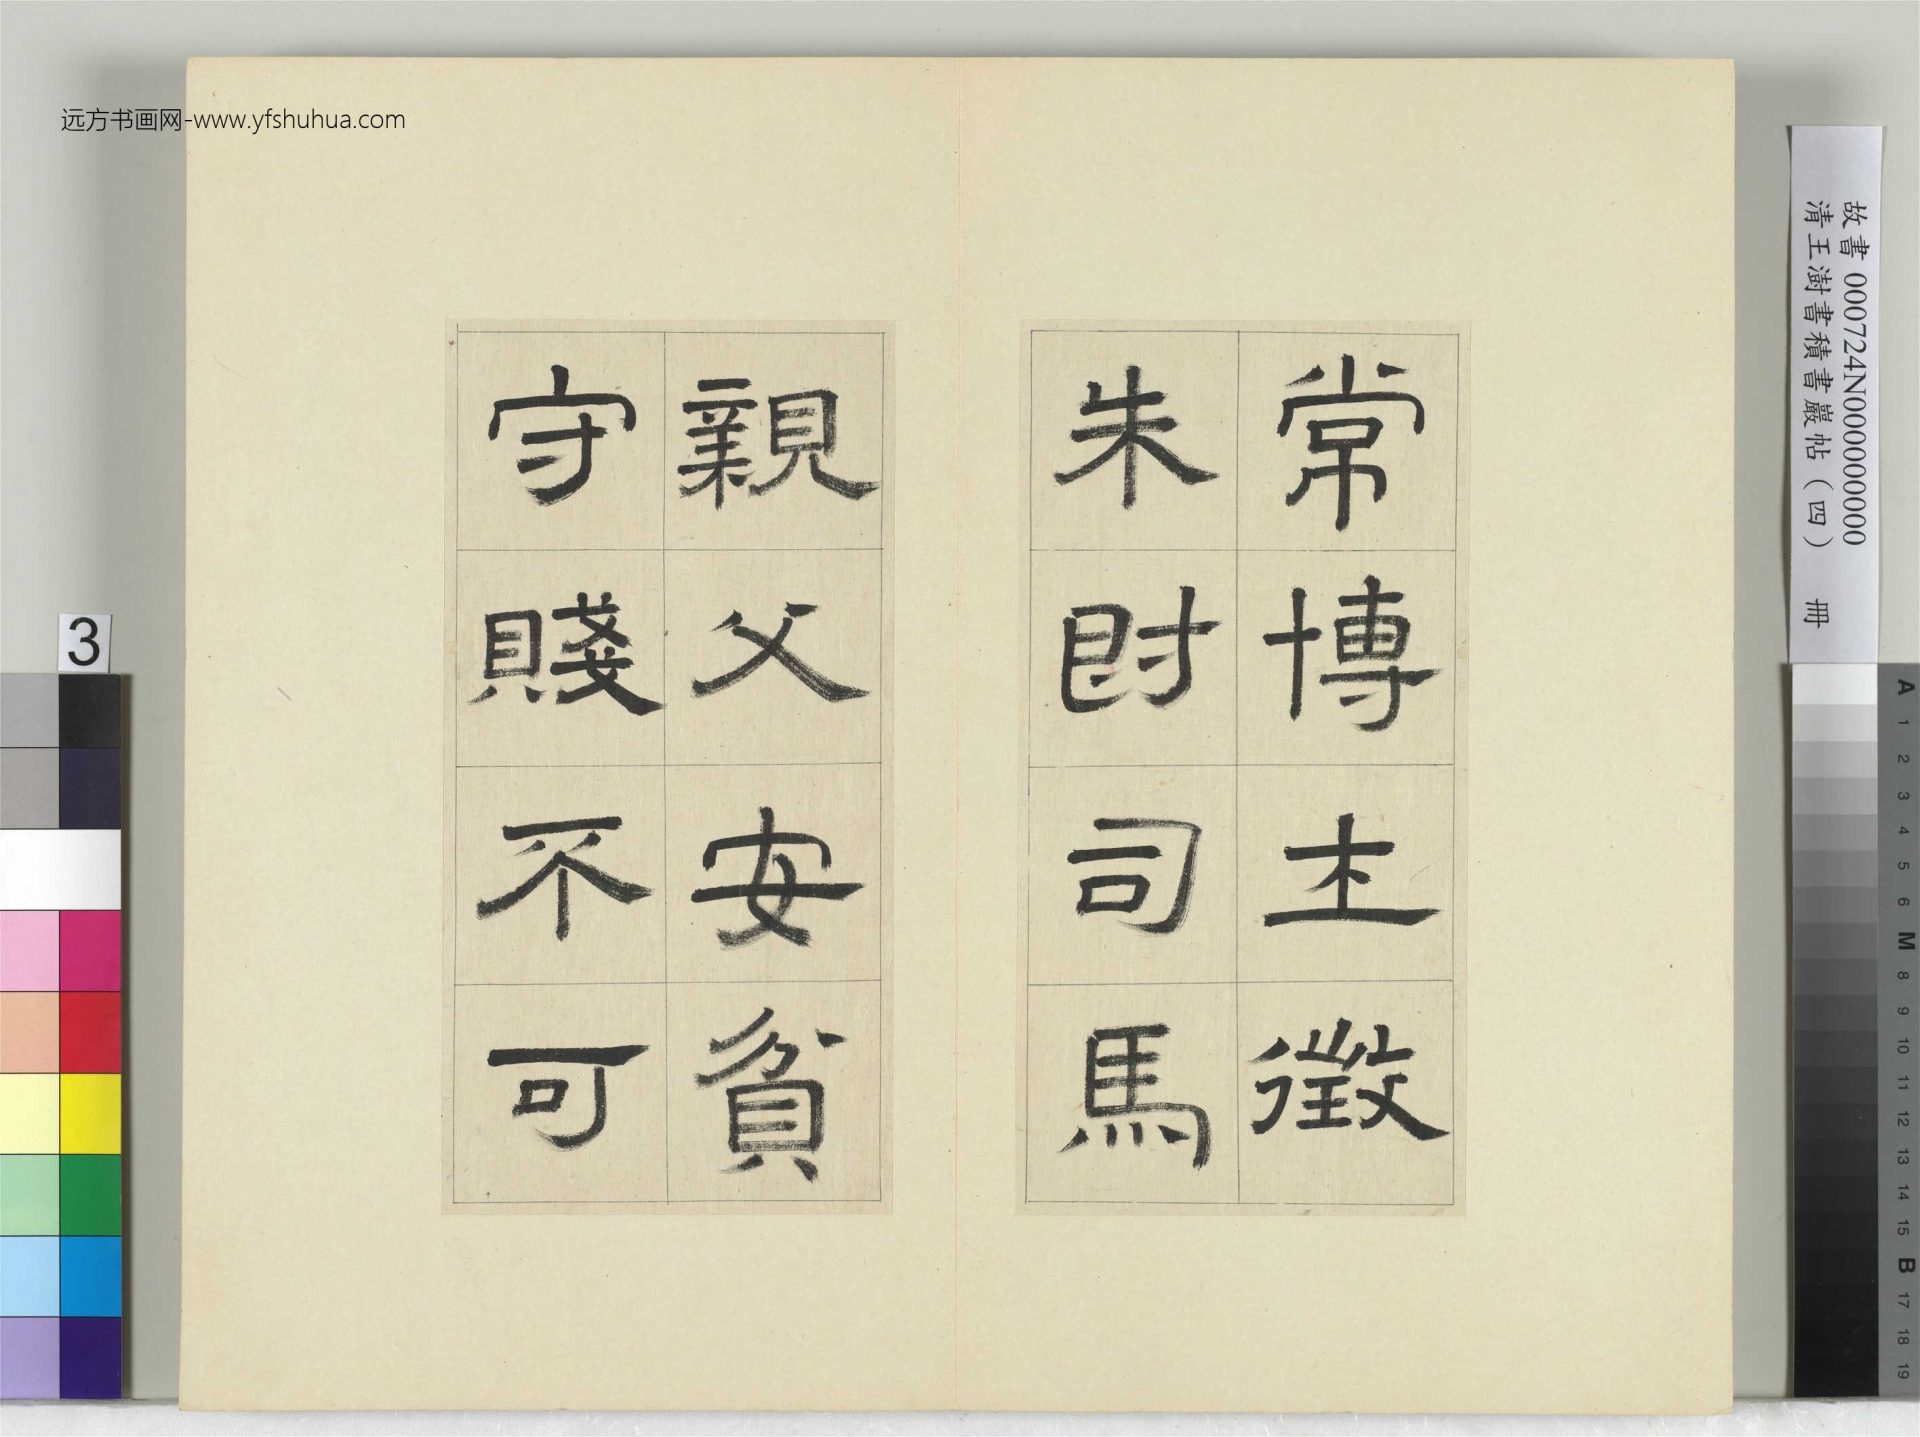 远方书画网-www.yfshuhua.com
常博士徵
朱爵司馬
親父安貧
守賤不可
故書 000724N000000000
清王澍書積書巖帖（四） 冊
3
A 1 2 3 4 5 6 M 8 9 10 11 12 13 14 15 B 17 18 19